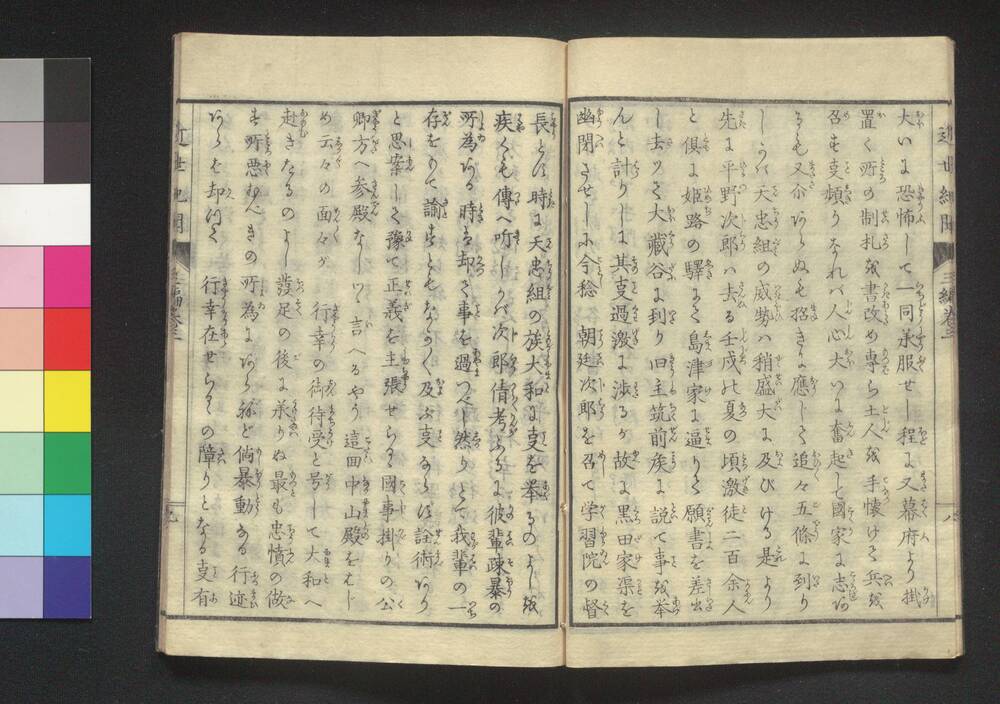 大いに恐怖して一同承服せし程に又幕府より掛
置く所の制札を書改め専ら土人を手懐けて兵を
召す事頻りなれバ人心大いに奮起して國家に志ある
ものも又尓あらぬも招きに應じて追々五條に到り
しかバ天忠組の威勢ハ稍盛大に及びける是より
先に平野次郎ハ去る壬戌の夏の頃激徒二百余人
と倶に姫路の驛にて島津家に逼りて願書を差出
し去ツて大藏谷に到り旧主筑前矦に説て事を挙
んと計りしに其事過激に渉るが故に黒田家渠を
幽閉させしに今稔 朝廷次郎を召て学習院の督
長とす時に天忠組の族大和に事を挙るのよしを
疾くも傳へ听しかバ次郎倩考ふるに彼輩疎暴の
所為ある時ハ却て事を過つべし然りとて我輩の一
存をもて諭すともなかなか及ぶ事ならじ詮術あり
と思案して豫て正義を主張せらるる國事掛りの公
卿方へ参殿なしツツ言へるやう這回中山殿をはじ
め云々の面々が 行幸の御待受と号して大和へ
赴きたるのよし發足の後に承りぬ最も忠憤の做
す所悪むべきの所為にあらねど倘暴動ある行迹
あらバ却つて 行幸在せらるるの障りとなる事有
近世紀聞 三編巻二 八
近世紀聞 三編巻二 九